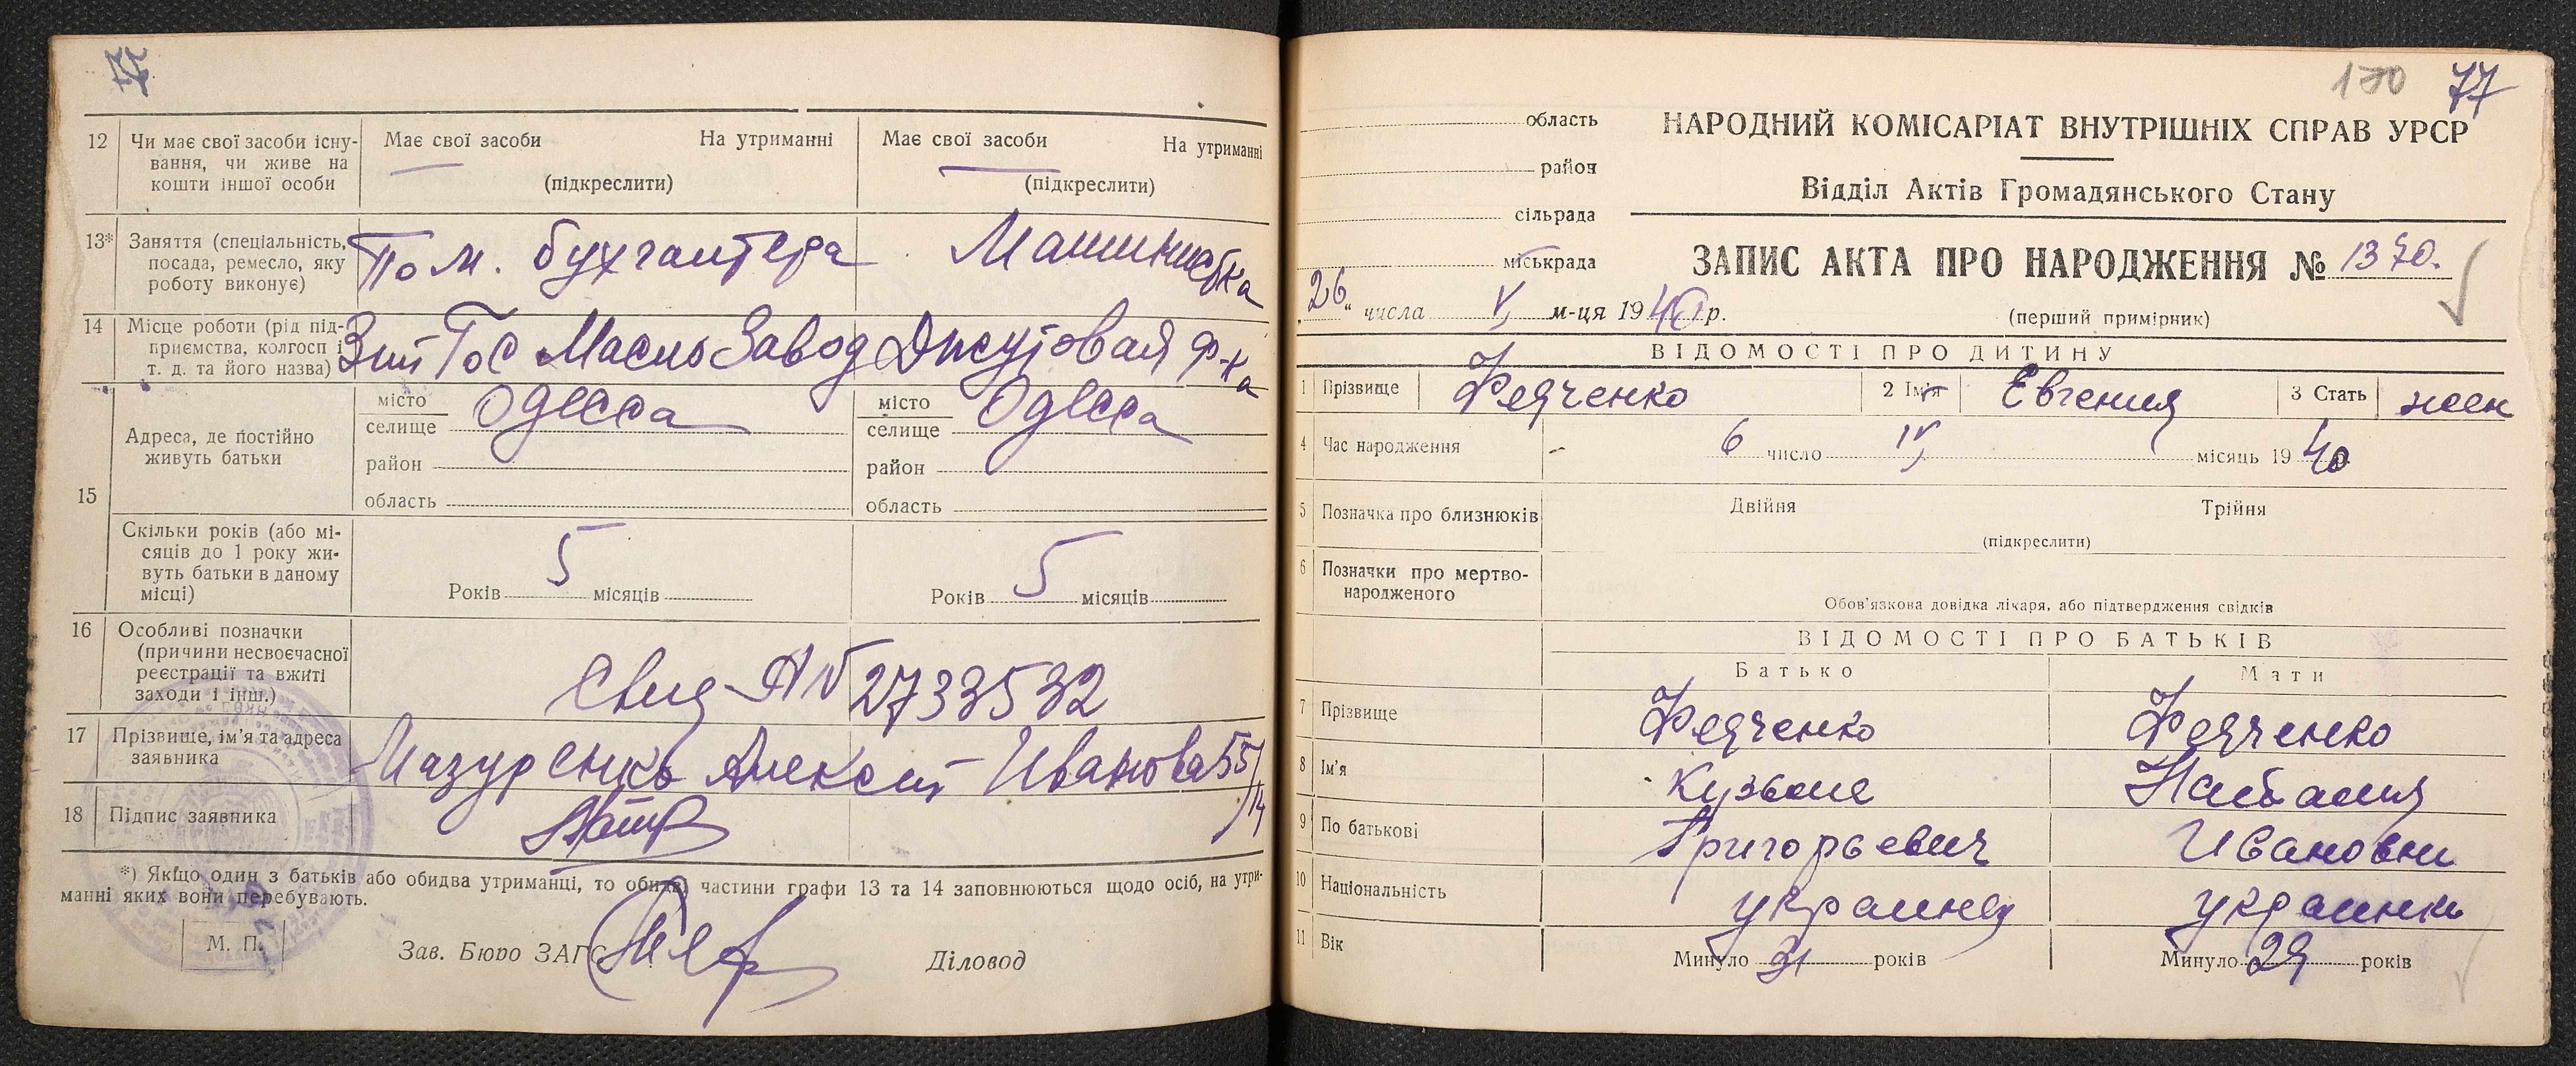 77
12 Чи має свої засоби існу-
вання, чи живе на
кошти іншої особи
Має свої засоби На утриманні
(підкреслити)
Має свої засоби На утриманні
(підкреслити)
13* Заняття (спеціальність,
посада, ремесло, яку
роботу виконує)
Пом. бухгалтера
Машинистка
14 Місце роботи (рід під-
приємства, колгосп і
т. д. та його назва)
Гос Масло Завод
Джутовая ф-ка
15 Адреса, де постійно
живуть батьки
місто
селище Одесса
район
область
місто
селище Одесса
район
область
Скільки років (або мі-
сяців до 1 року жи-
вуть батьки в даному
місці)
Років 5 місяців
Років 5 місяців
16 Особливі позначки
(причини несвоєчасної
реєстрації та вжиті
заходи і інш.)
Свид АN 2733532
17 Прізвище, ім'я та адреса
заявника
Мазуренко Алексей Иванова 55/14
18 Підпис заявника
*) Якщо один з батьків або обидва утриманці, то обидві частини графи 13 та 14 заповнюються щодо осіб, на утри-
манні яких вони перебувають.
М. П.
Зав. Бюро ЗАГС
Діловод
170 77
область
район
сільрада
міськрада
НАРОДНИЙ КОМІСАРІАТ ВНУТРІШНІХ СПРАВ УРСР
Відділ Актів Громадянського Стану
ЗАПИС АКТА ПРО НАРОДЖЕННЯ № 1370.
„26“ числа V м-ця 1940 р.
(перший примірник)
ВІДОМОСТІ ПРО ДИТИНУ
1 Прізвище Федченко 2 Ім'я Евгения 3 Стать жен
4 Час народження 6 число IV місяць 1940 р.
5 Позначка про близнюків Двійня Трійня
(підкреслити)
6 Позначки про мертво-
народженого
Обов'язкова довідка лікаря, або підтвердження свідків
ВІДОМОСТІ ПРО БАТЬКІВ
Батько Мати
7 Прізвище Федченко Федченко
8 Ім'я Кузьме Наталия
9 По батькові Григорьевич Ивановна
10 Національність украинец украинка
11 Вік Минуло 31 років Минуло 29 років